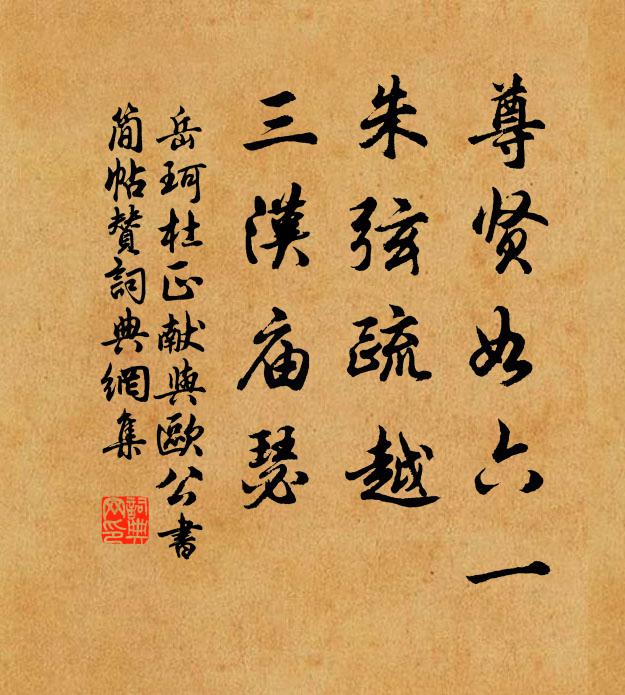 尊贤如六一
朱弦疏越
三漢庙瑟
岳珂杜正献與歐公書
简帖赞詞典網集
詞典网印